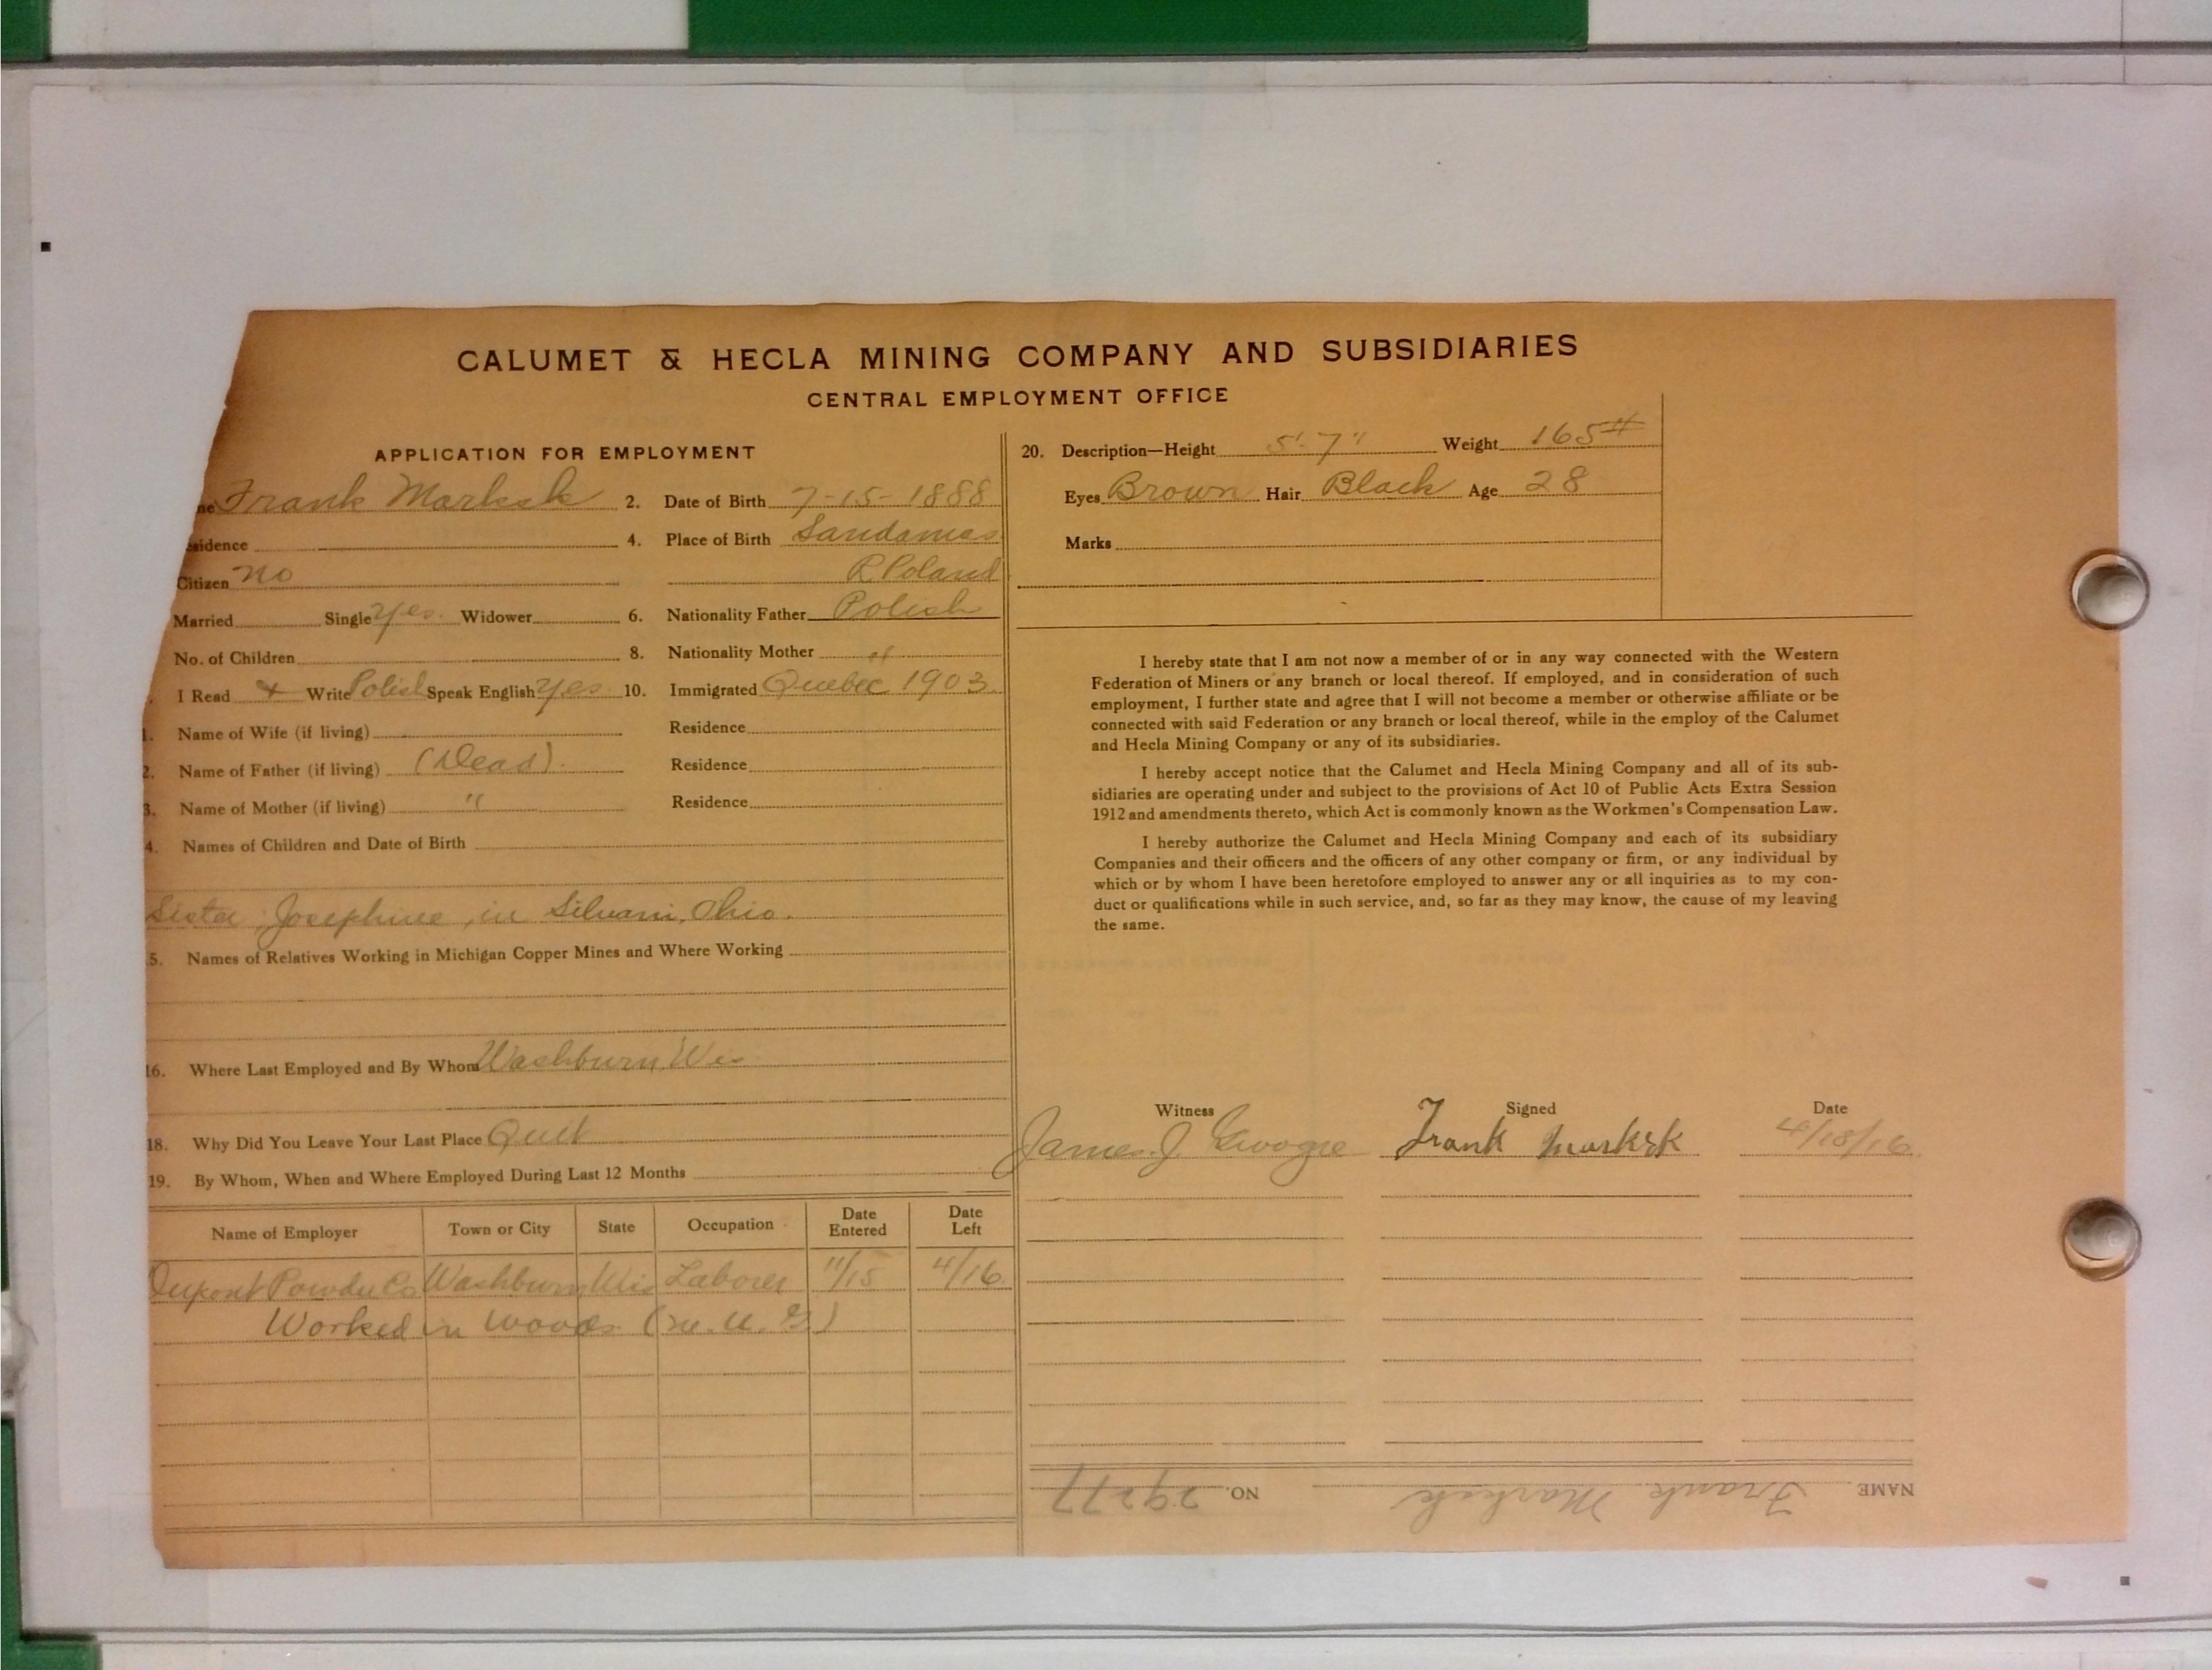 CALUMET & HECLA MINING COMPANY AND SUBSIDIARIES
CENTRAL EMPLOYMENT OFFICE
APPLICATION FOR EMPLOYMENT
me Frank Markek 2. Date of Birth 7-15-1888
sidence 4. Place of Birth Sandomas
Citizen no R Poland
Married Single yes. Widower 6. Nationality Father Polish
No. of Children 8. Nationality Mother "
I Read + Write Polish Speak English yes 10. Immigrated Quebec 1903
1. Name of Wife (if living) Residence
2. Name of Father (if living) (Dead). Residence
3. Name of Mother (if living) " Residence
4. Names of Children and Date of Birth
Sister, Josephine, in Silvani, Ohio.
5. Names of Relatives Working in Michigan Copper Mines and Where Working
16. Where Last Employed and By Whom Washburn, Wis
18. Why Did You Leave Your Last Place Quit
19. By Whom, When and Where Employed During Last 12 Months
Name of Employer Town or City State Occupation Date Entered Date Left
Dupont Powder Co Washburn Wis Laborer 11/15 4/16
Worked in woods
20. Description—Height 5'-7" Weight 165#
Eyes Brown Hair Black Age 28
Marks
I hereby state that I am not now a member of or in any way connected with the Western
Federation of Miners or any branch or local thereof. If employed, and in consideration of such
employment, I further state and agree that I will not become a member or otherwise affiliate or be
connected with said Federation or any branch or local thereof, while in the employ of the Calumet
and Hecla Mining Company or any of its subsidiaries.
I hereby accept notice that the Calumet and Hecla Mining Company and all of its sub-
sidiaries are operating under and subject to the provisions of Act 10 of Public Acts Extra Session
1912 and amendments thereto, which Act is commonly known as the Workmen's Compensation Law.
I hereby authorize the Calumet and Hecla Mining Company and each of its subsidiary
Companies and their officers and the officers of any other company or firm, or any individual by
which or by whom I have been heretofore employed to answer any or all inquiries as to my con-
duct or qualifications while in such service, and, so far as they may know, the cause of my leaving
the same.
Witness Signed Date
James J. Frank Markek 4/18/16
NAME Frank Markek NO. 29277